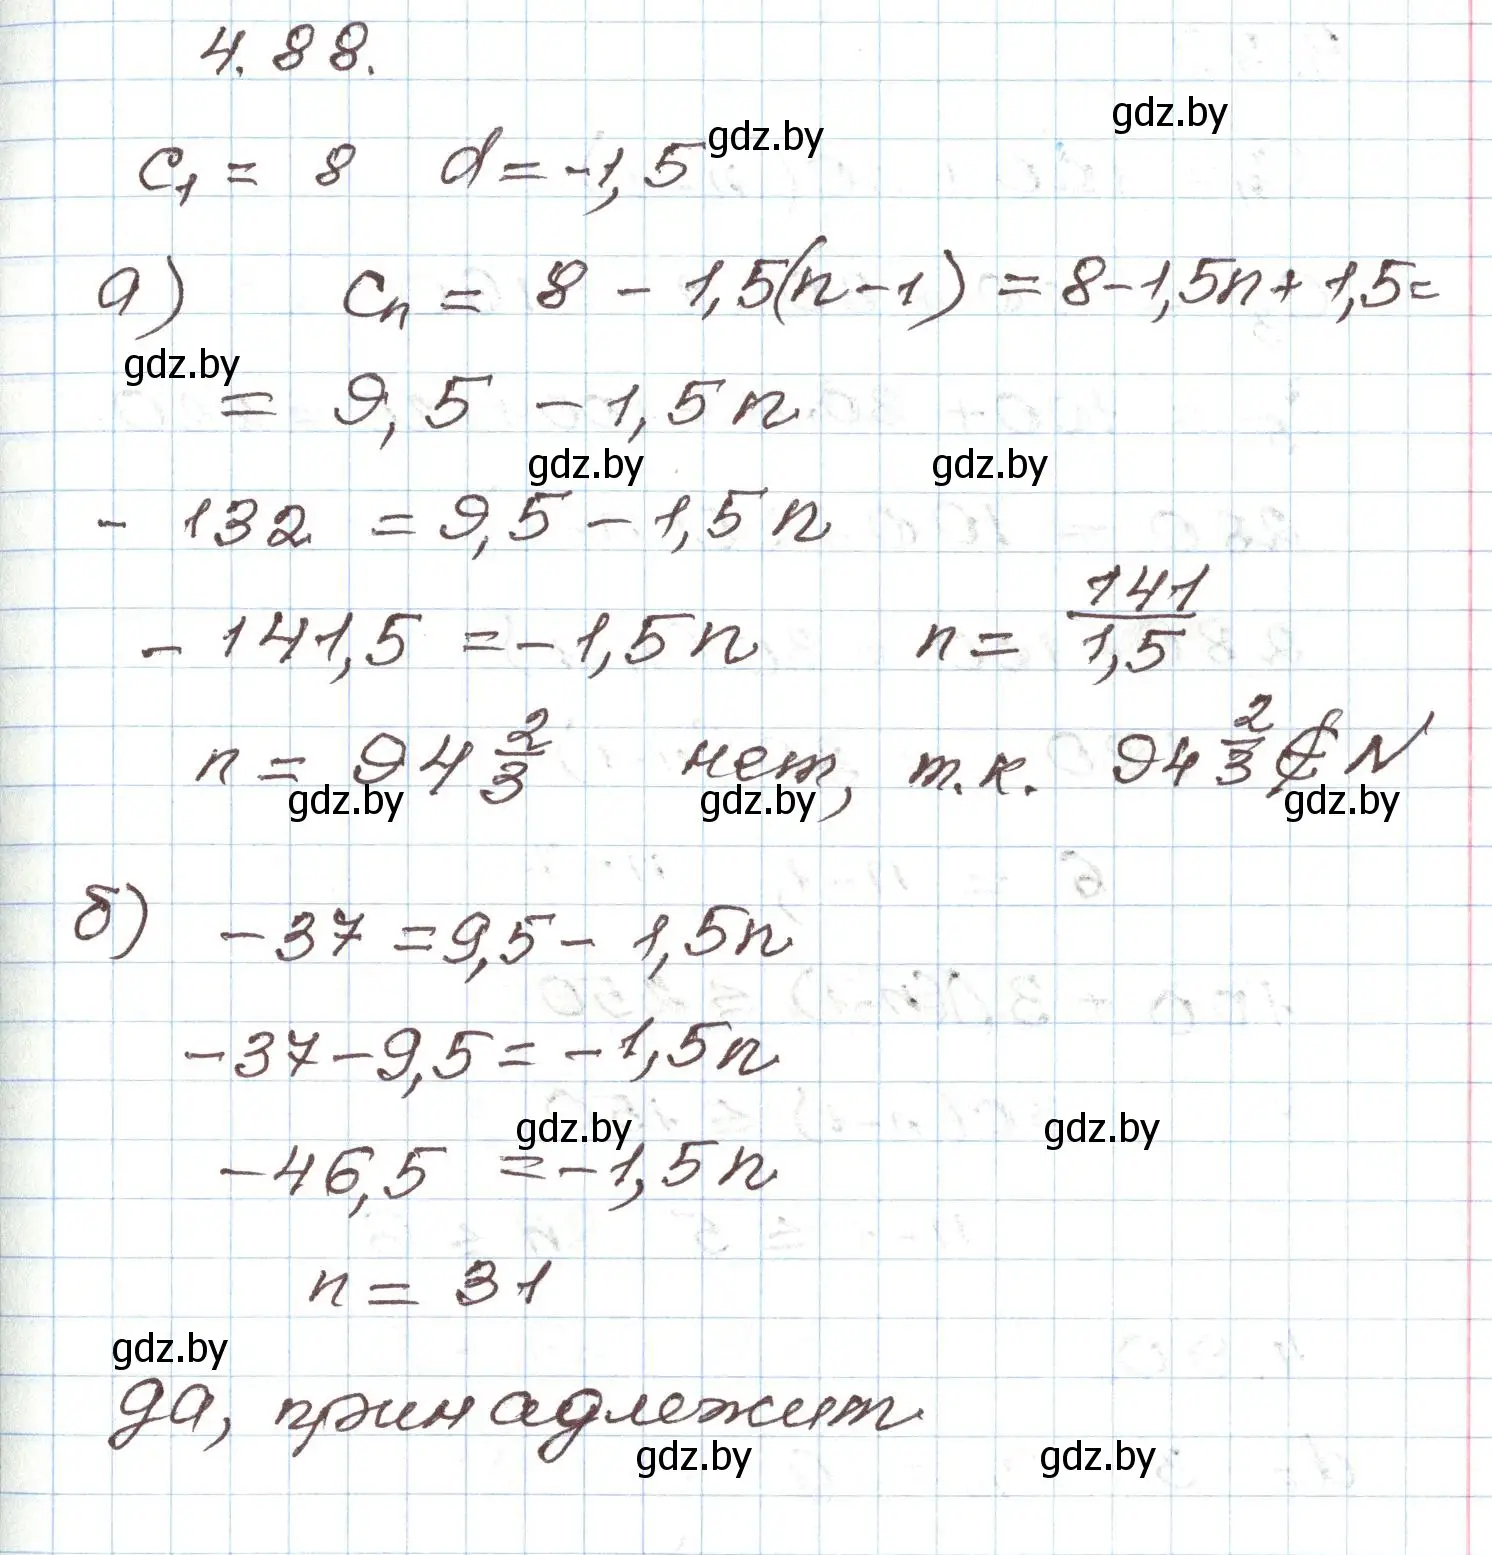 4.88.
c₁ = 8 d = -1,5 gdz.by gdz.by
а) cₙ = 8 - 1,5(n-1) = 8-1,5n+1,5=
gdz.by
= 9,5 - 1,5n
gdz.by gdz.by
- 132 = 9,5 - 1,5n
- 141,5 = -1,5n n = 141/1,5
n = 94 2/3 нет, т.к. 94 2/3 ∉ N
gdz.by gdz.by gdz.by
б) -37 = 9,5 - 1,5n
-37-9,5 = -1,5n
gdz.by gdz.by
-46,5 = -1,5n
n = 31
gdz.by
да, принадлежит
gdz.by gdz.by